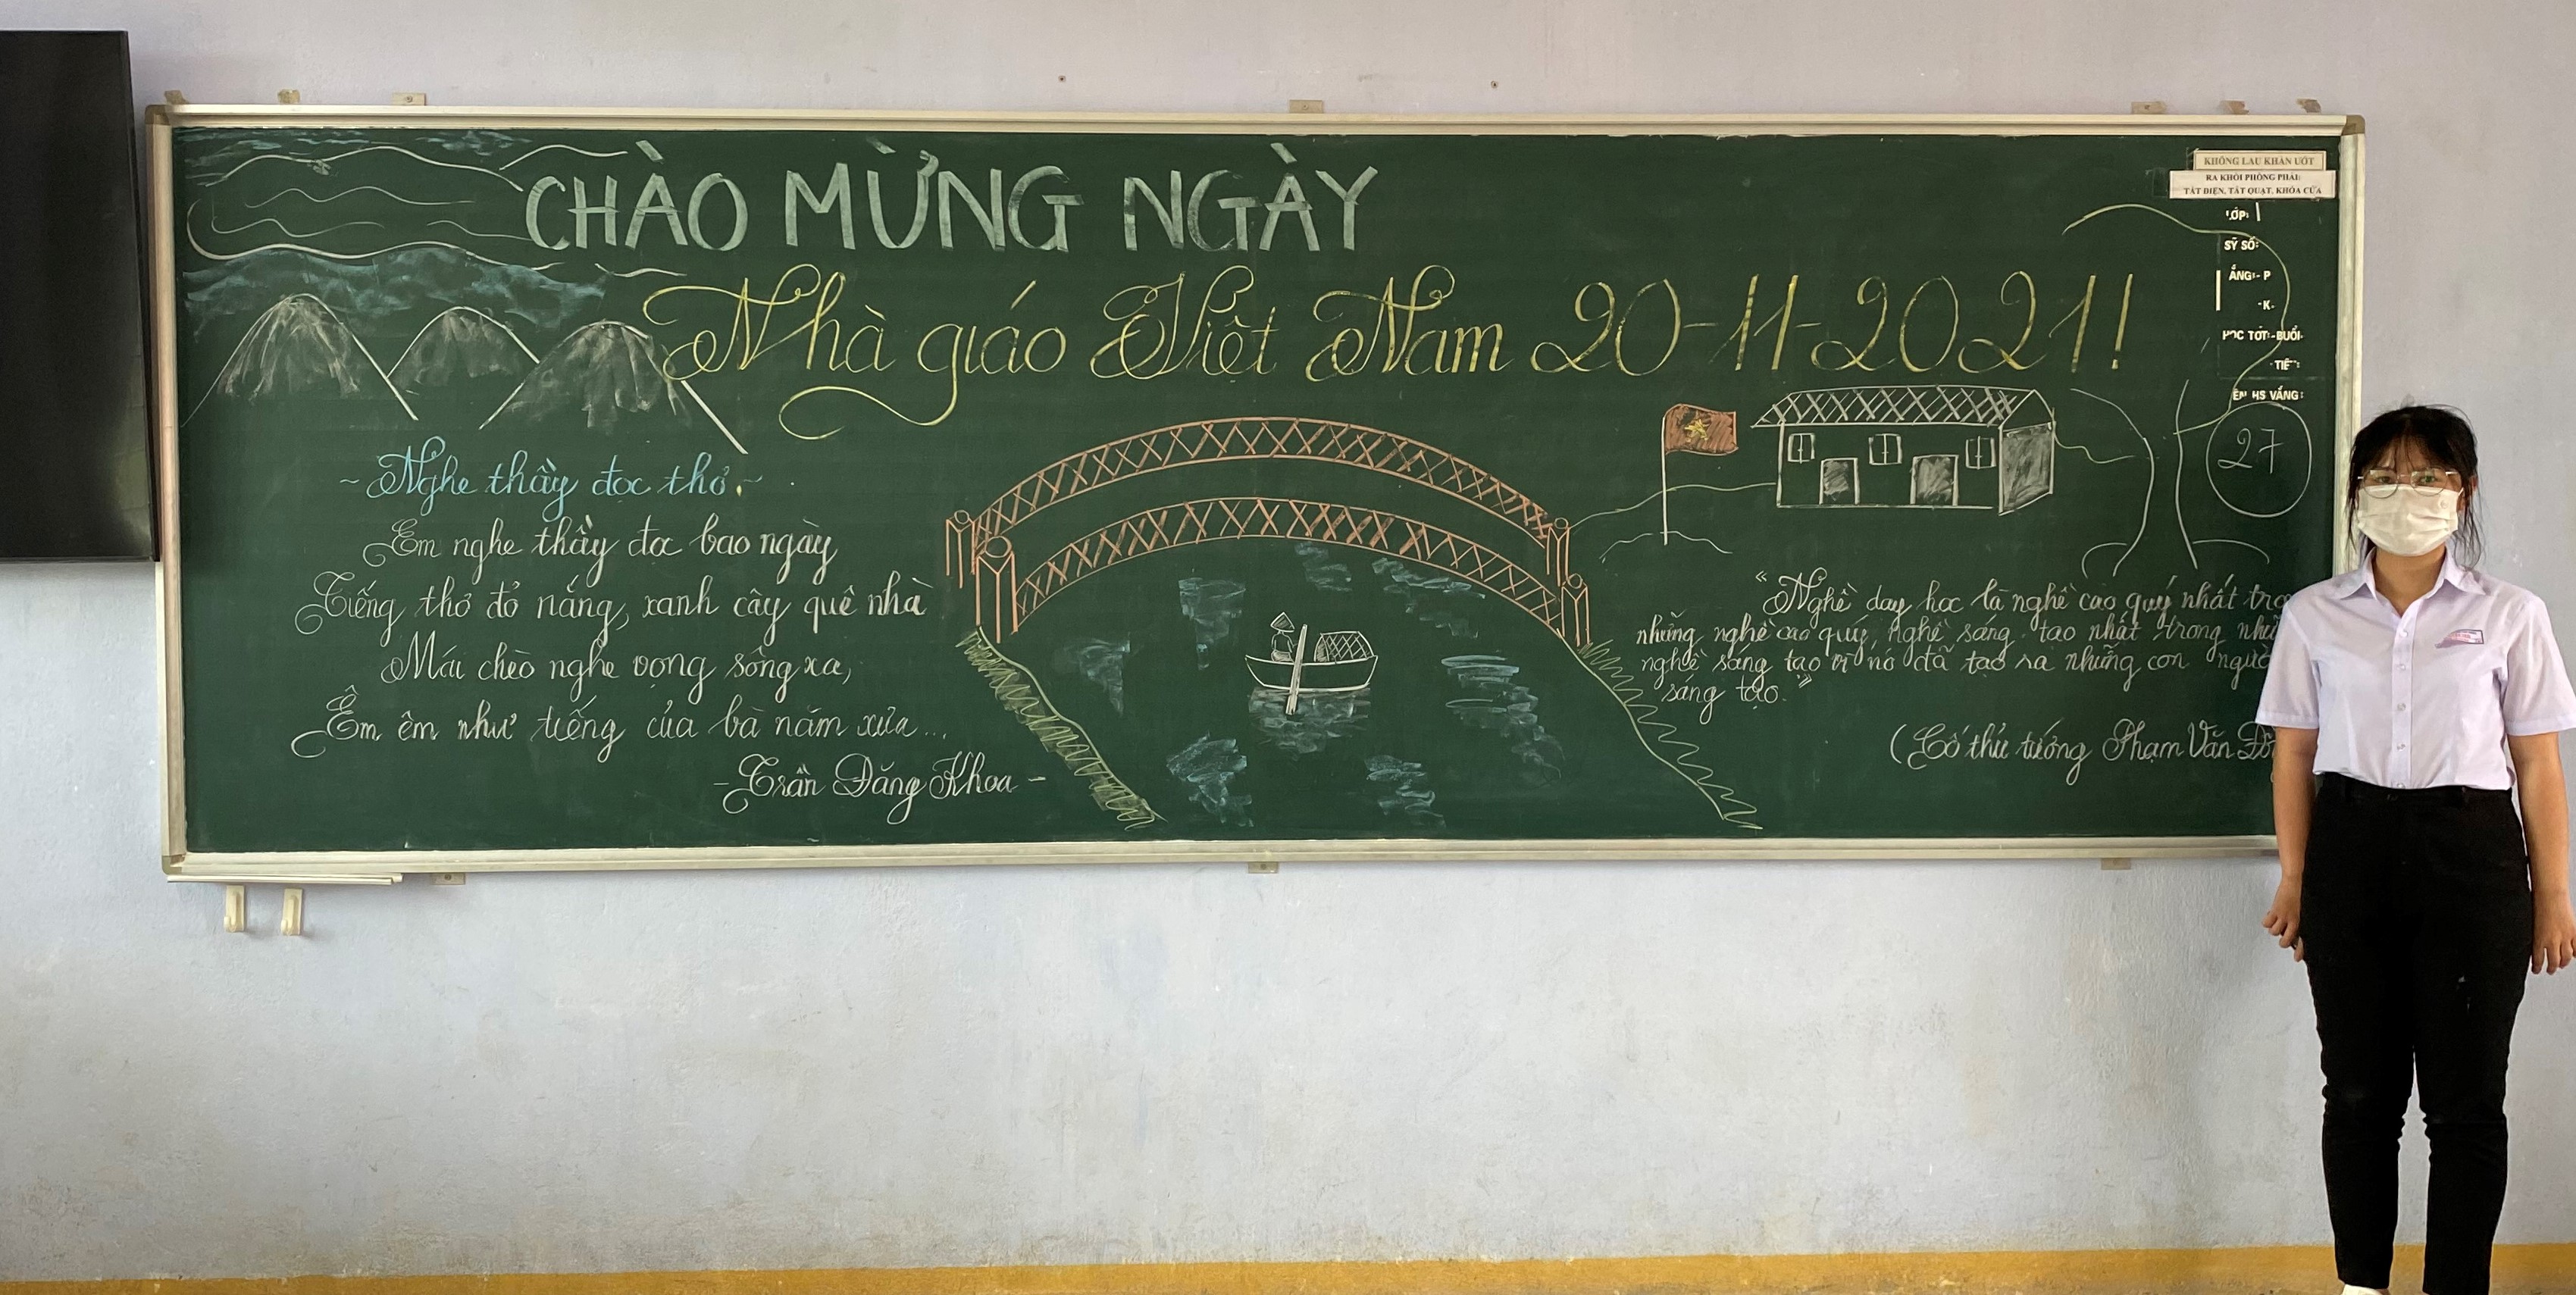 CHÀO MỪNG NGÀY
Nhà giáo Việt Nam 20-11-2021!
KHÔNG LAU KHĂN ƯỚT
RA KHỎI PHÒNG PHẢI:
TẮT ĐIỆN, TẮT QUẠT, KHÓA CỬA
LỚP:
SỸ SỐ:
- P
-K.
HỌC TỐT:-BUỔI:
HS VẮNG:
27
~Nghe thầy đọc thơ.~
Em nghe thầy đọc bao ngày
Tiếng thơ đỏ nắng, xanh cây quê nhà
Mái chèo nghe vọng sông xa,
Êm êm như tiếng của bà năm xưa...
-Trần Đăng Khoa-
"Nghề dạy học là nghề cao quý nhất
những nghề cao quý, nghề sáng tạo nhất trong
nghề sáng tạo vì nó đã tạo ra những con
sáng tạo."
(Cố thủ tướng Phạm Văn